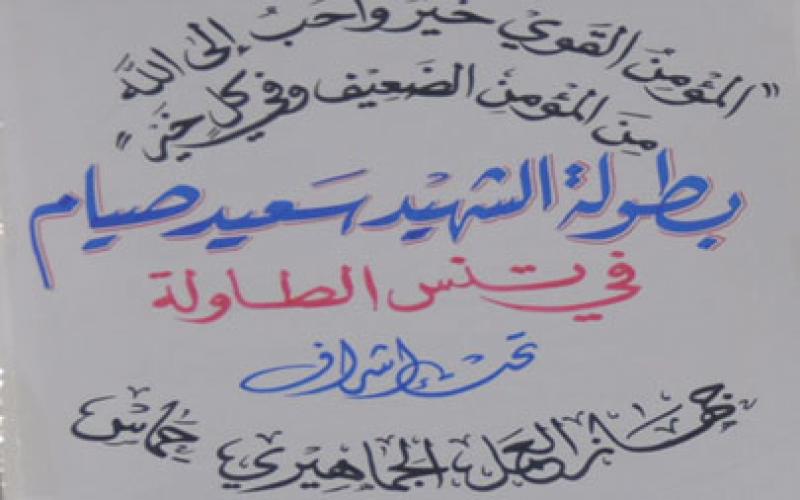 "المؤمن القوي خير وأحب إلى الله
من المؤمن الضعيف وفي كل خير"
بطولة الشهيد سعيد صيام
في تنس الطاولة
تحت إشراف
جهاز العمل الجماهيري حماس